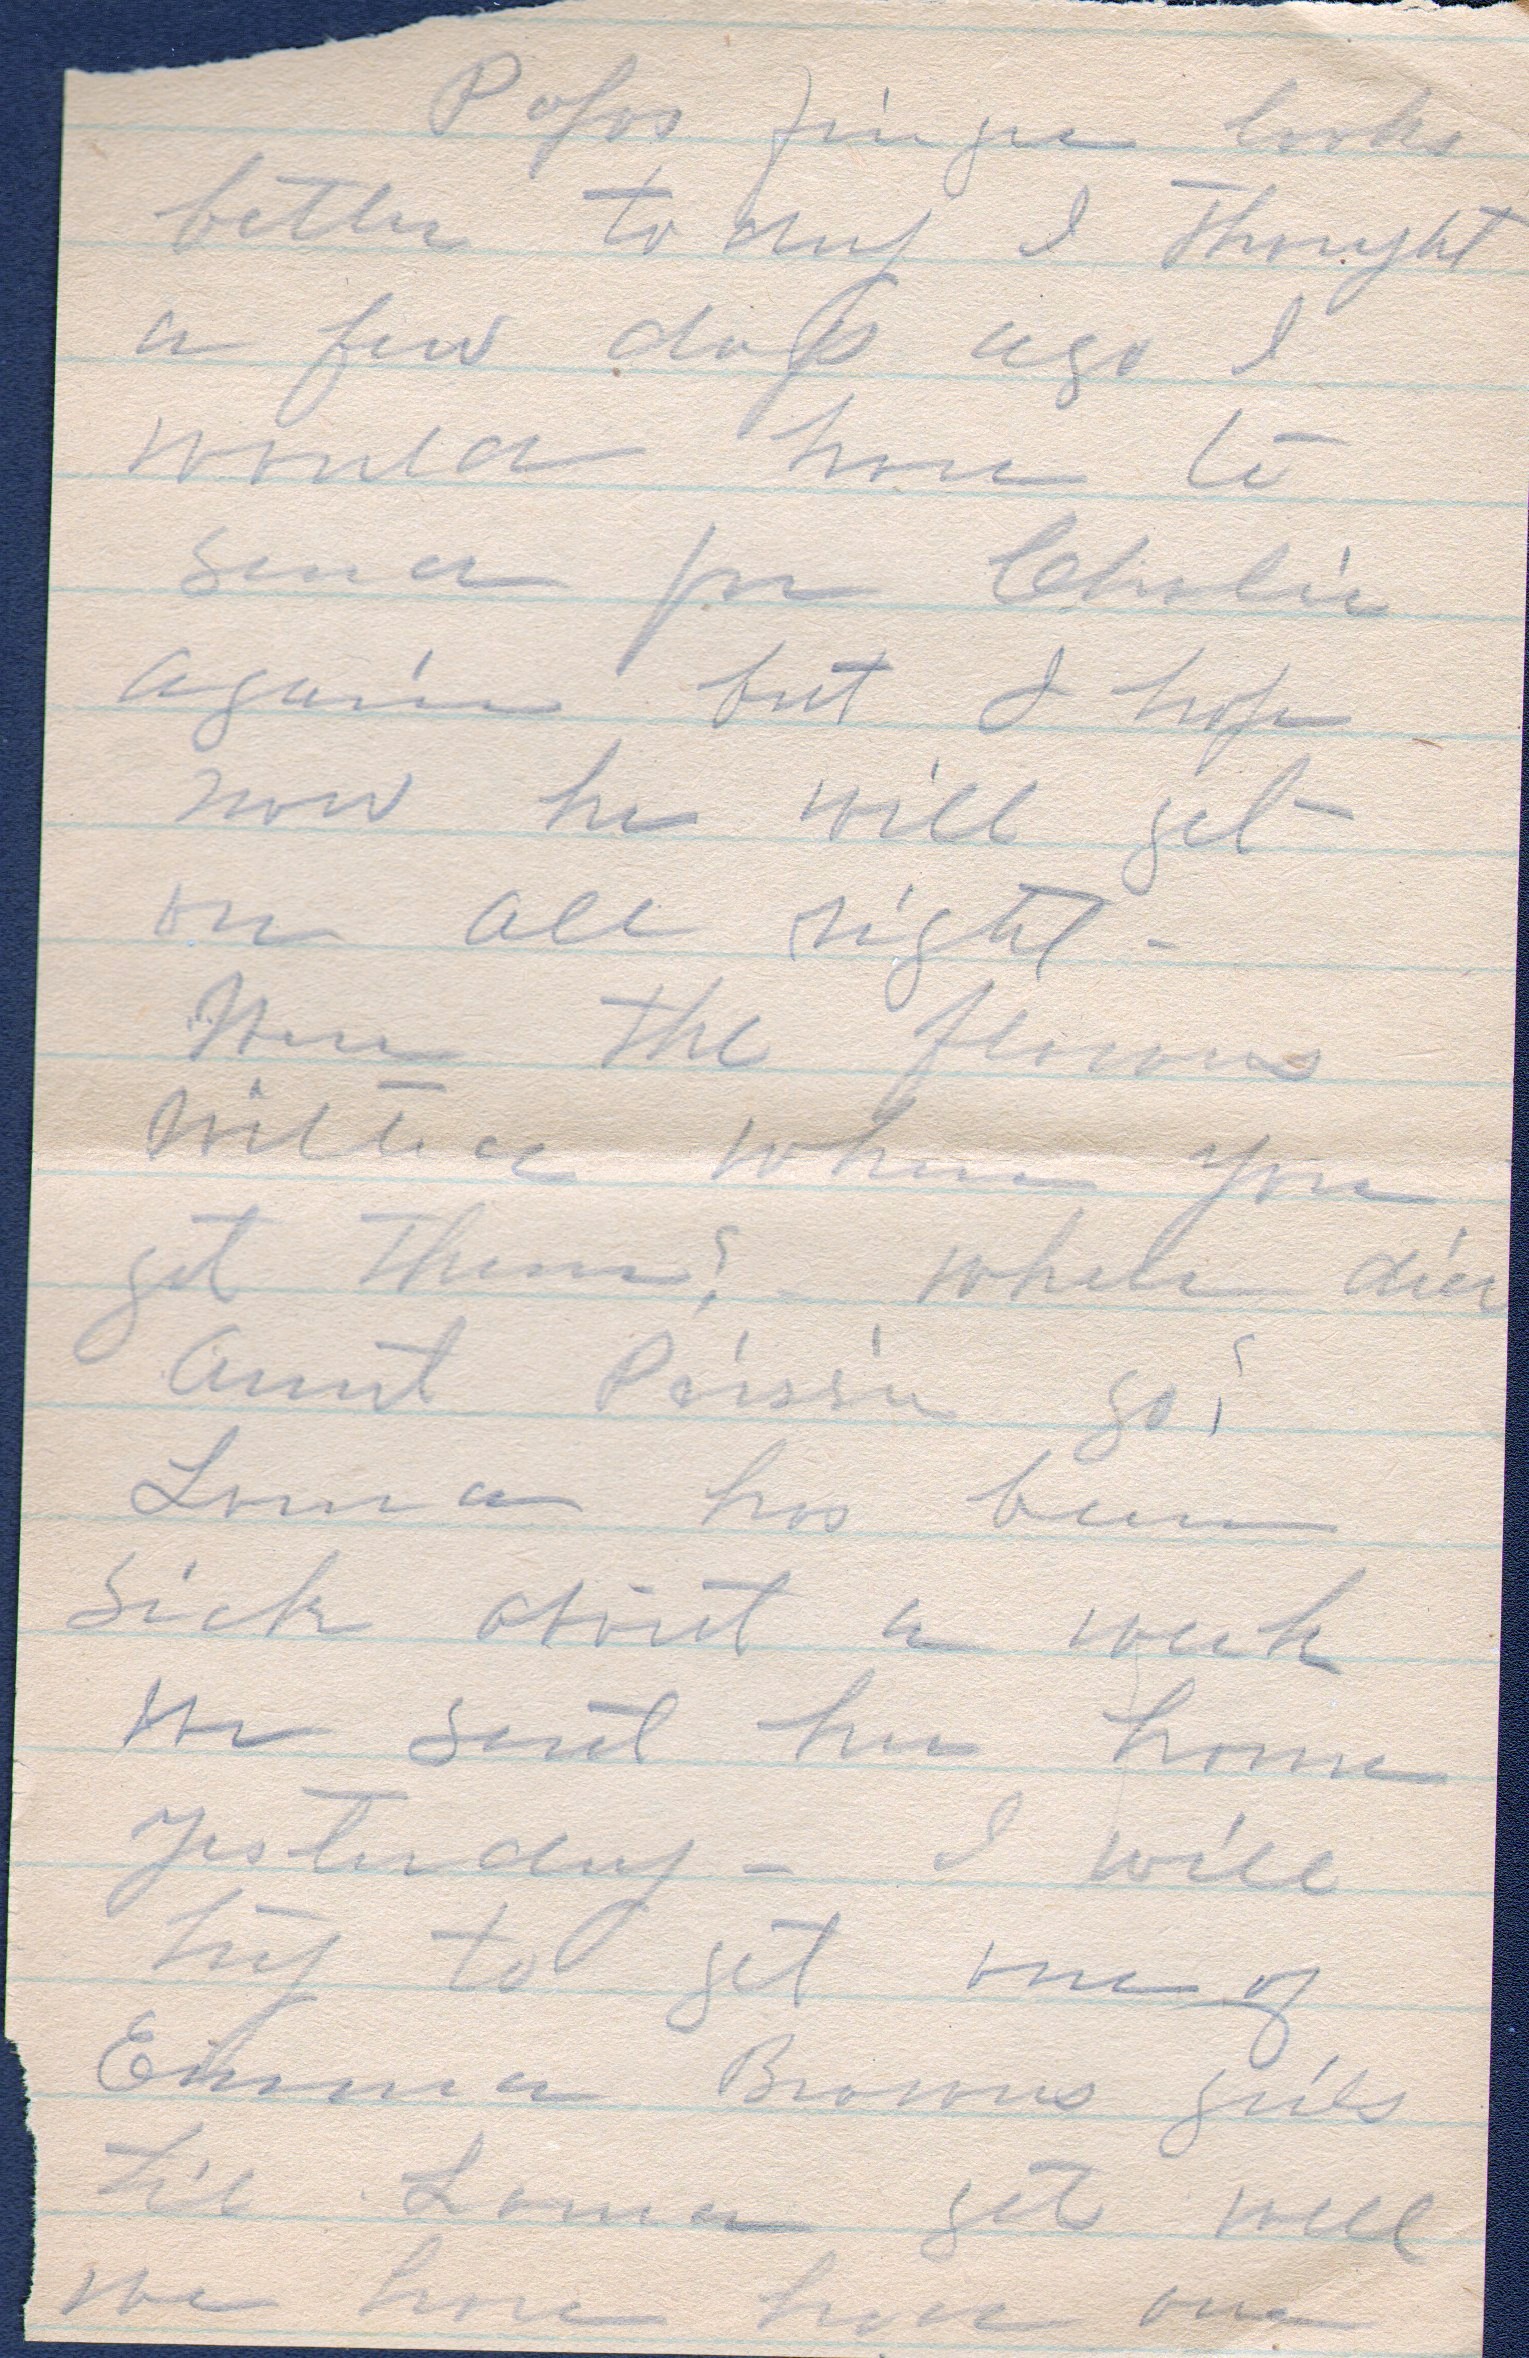 Papas finger looks
better to day I thought
a few days ago I
would have to
send for Charlie
again but I hope
now he will get
on all right -
Were the flowers
wilted when you
get them? - where did
Aunt go?
Louna has been
sick about a week
we sent her home
yesterday - I will
try to get one of
Emma Browns girls
til Louna get well
we have have one